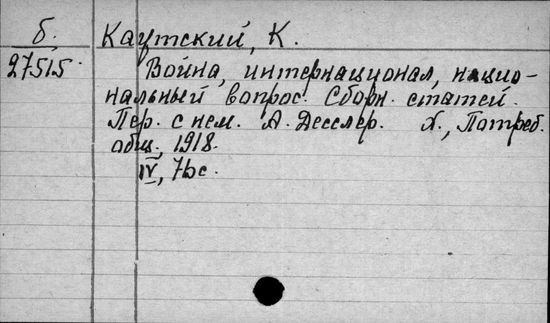 б. Каутский, К.
27515. Война, интернационал, нацио-
нальный вопрос. Сборн. статей.
Пер. с нем. А. Десслер. Х., Потреб.
общ., 1918.
IV, 71 с.